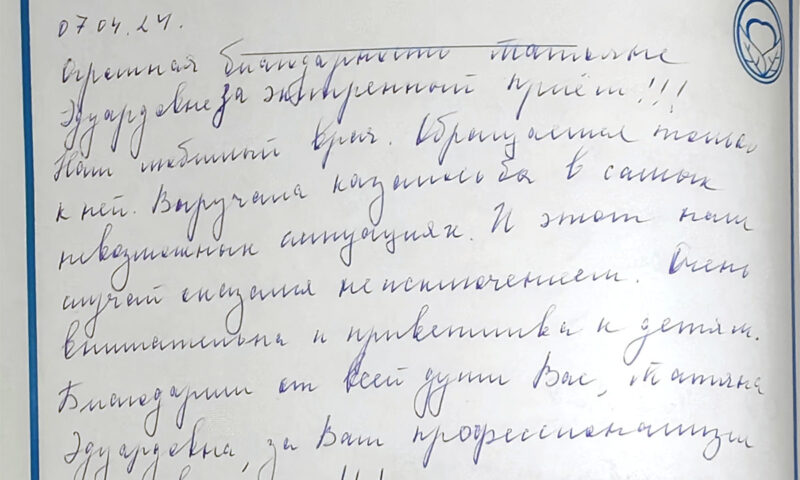 07.04.24.
Огромная благодарность Татьяне
Эдуардовне за экстренный приём!!!
Наш любимый врач. Обращаемся только
к ней. Выручала казалось бы в самых
невозможных ситуациях. И этот наш
случай оказался не исключением. Очень
внимательна и приветлива к детям.
Благодарим от всей души Вас, Татьяна
Эдуардовна, за Ваш профессионализм